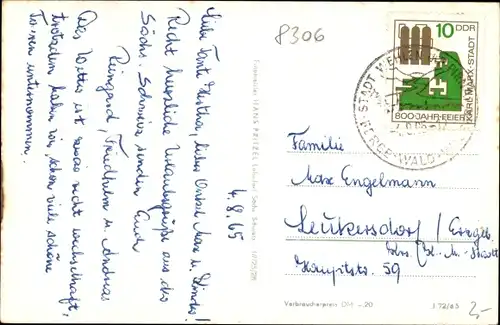 8306
4.8.65
Liebe Tante Hertha, lieber Onkel Max u. Kinder!
Recht herzliche Urlaubsgrüße aus der
Sächs. Schweiz senden Euch
Reingard, Friedhelm u. Andreas
Das Wetter ist zwar recht wechselhaft,
trotzdem haben wir schon viele schöne
Touren unternommen.
10 DDR
KARL-MARX-STADT
800-JAHR-FEIER
STADT WEHLEN
BERGE-WALD
Familie
Max Engelmann
Leukersdorf / Erzgeb.
Krs. K.-M.-Stadt
Hauptstr. 59
Verbraucherpreis DM -.20
J 72/65
2,-